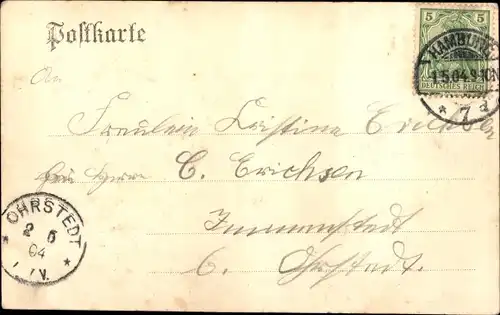 Postkarte
5 5
DEUTSCHES REICH
HAMBURG
1.5.04.9-10N
* 7 d
An
Fräulein Kristine Erichsen
Herrn C. Erichsen
Immenstedt
b. Ohrstedt.
OHRSTEDT
2 5
04
V.